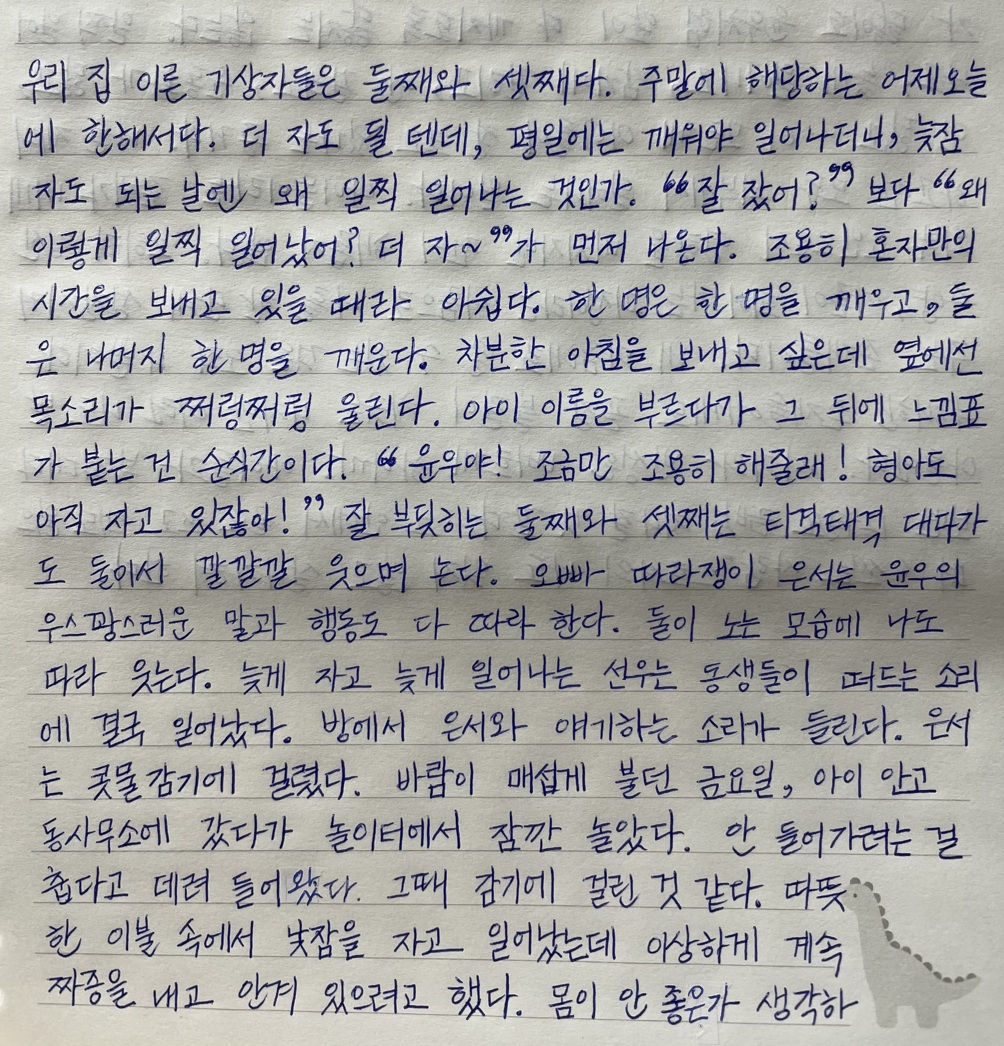 우리 집 이른 기상자들은 둘째와 셋째다. 주말에 해당하는 어제오늘
에 한해서다. 더 자도 될 텐데, 평일에는 깨워야 일어나더니, 늦잠
자도 되는 날엔 왜 일찍 일어나는 것인가. “잘 잤어?” 보다 “왜
이렇게 일찍 일어났어? 더 자~”가 먼저 나온다. 조용히 혼자만의
시간을 보내고 있을 때라 아쉽다. 한 명은 한 명을 깨우고, 둘
은 나머지 한 명을 깨운다. 차분한 아침을 보내고 싶은데 옆에선
목소리가 쩌렁쩌렁 울린다. 아이 이름을 부르다가 그 뒤에 느낌표
가 붙는 건 순식간이다. “윤우야! 조금만 조용히 해줄래! 형아도
아직 자고 있잖아!” 잘 부딪히는 둘째와 셋째는 티격태격 대다가
도 둘이서 깔깔깔 웃으며 논다. 오빠 따라쟁이 은서는 윤우의
우스꽝스러운 말과 행동도 다 따라 한다. 둘이 노는 모습에 나도
따라 웃는다. 늦게 자고 늦게 일어나는 선우는 동생들이 떠드는 소리
에 결국 일어났다. 방에서 은서와 얘기하는 소리가 들린다. 은서
는 콧물감기에 걸렸다. 바람이 매섭게 불던 금요일, 아이 안고
동사무소에 갔다가 놀이터에서 잠깐 놀았다. 안 들어가려는 걸
춥다고 데려 들어왔다. 그때 감기에 걸린 것 같다. 따뜻
한 이불 속에서 낮잠을 자고 일어났는데 이상하게 계속
짜증을 내고 안겨 있으려고 했다. 몸이 안 좋은가 생각하